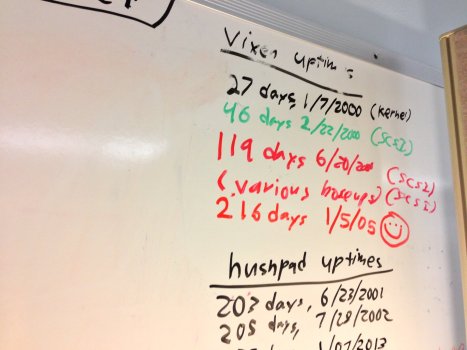 Vixen uptimes
27 days, 1/7/2000 (kernel)
46 days 2/22/2000 (SCSI)
119 days 6/20/2000 (SCSI)
(various hoseups) (SCSI)
216 days 1/5/05
hushpad uptimes
203 days, 6/23/2001
205 days, 7/29/2002